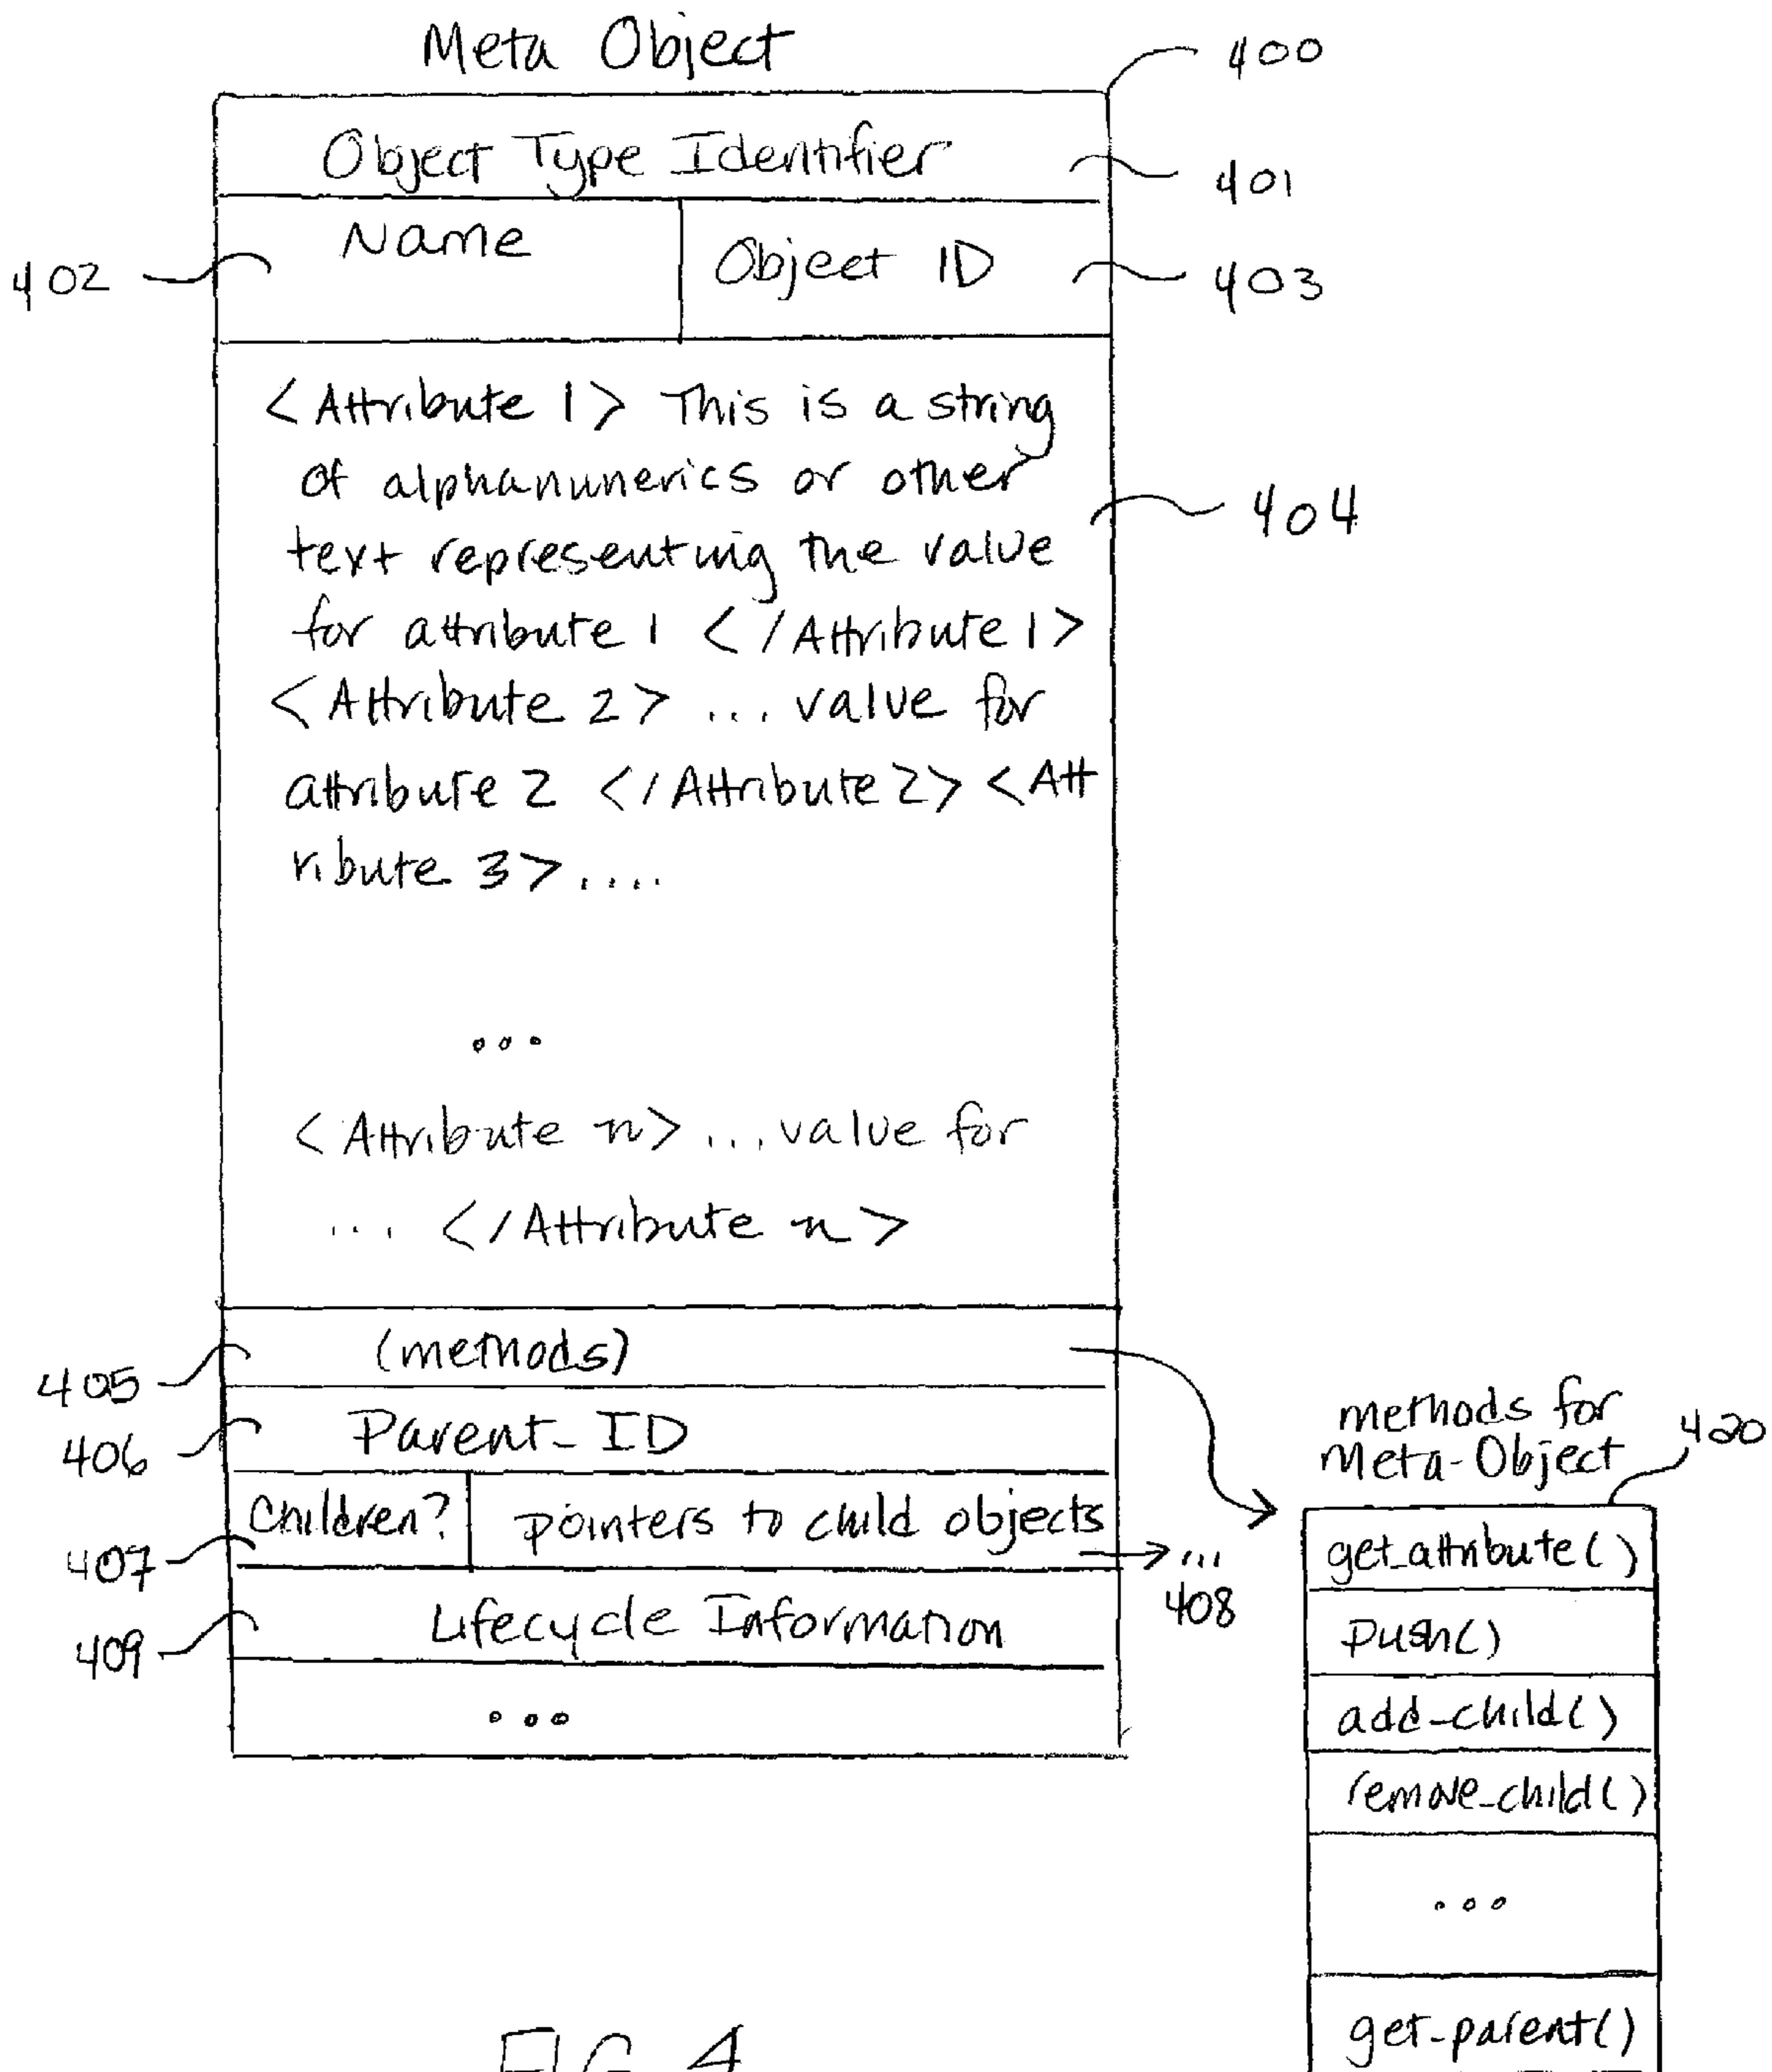 Meta Object
400
Object Type Identifier
401
402
Name
Object ID
403
<Attribute 1> This is a string
of alphanumerics or other
text representing the value
for attribute 1 </Attribute 1>
404
<Attribute 2> ... value for
attribute 2 </Attribute 2> <Att
ribute 3> ....
...
<Attribute n> ... value for
... </Attribute n>
405
(methods)
406
Parent_ID
407
Children?
pointers to child objects
...
408
409
Lifecycle Information
...
methods for
Meta-Object
420
get_attribute()
push()
add_child()
remove_child()
...
get_parent()
FIG. 4